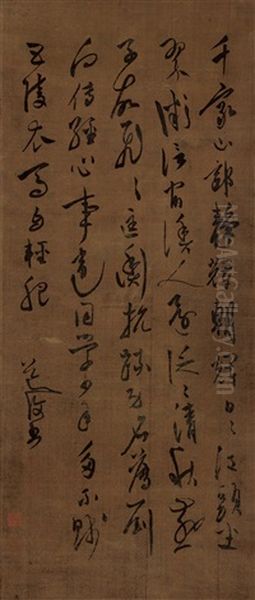 千家山郭静朝暉日々江頭坐
翠微信宿漁人還泛々清秋燕
子故飛々匡衡抗疏功名薄劉
向傳經心事違同學少年多不賤
五陵衣馬自輕肥